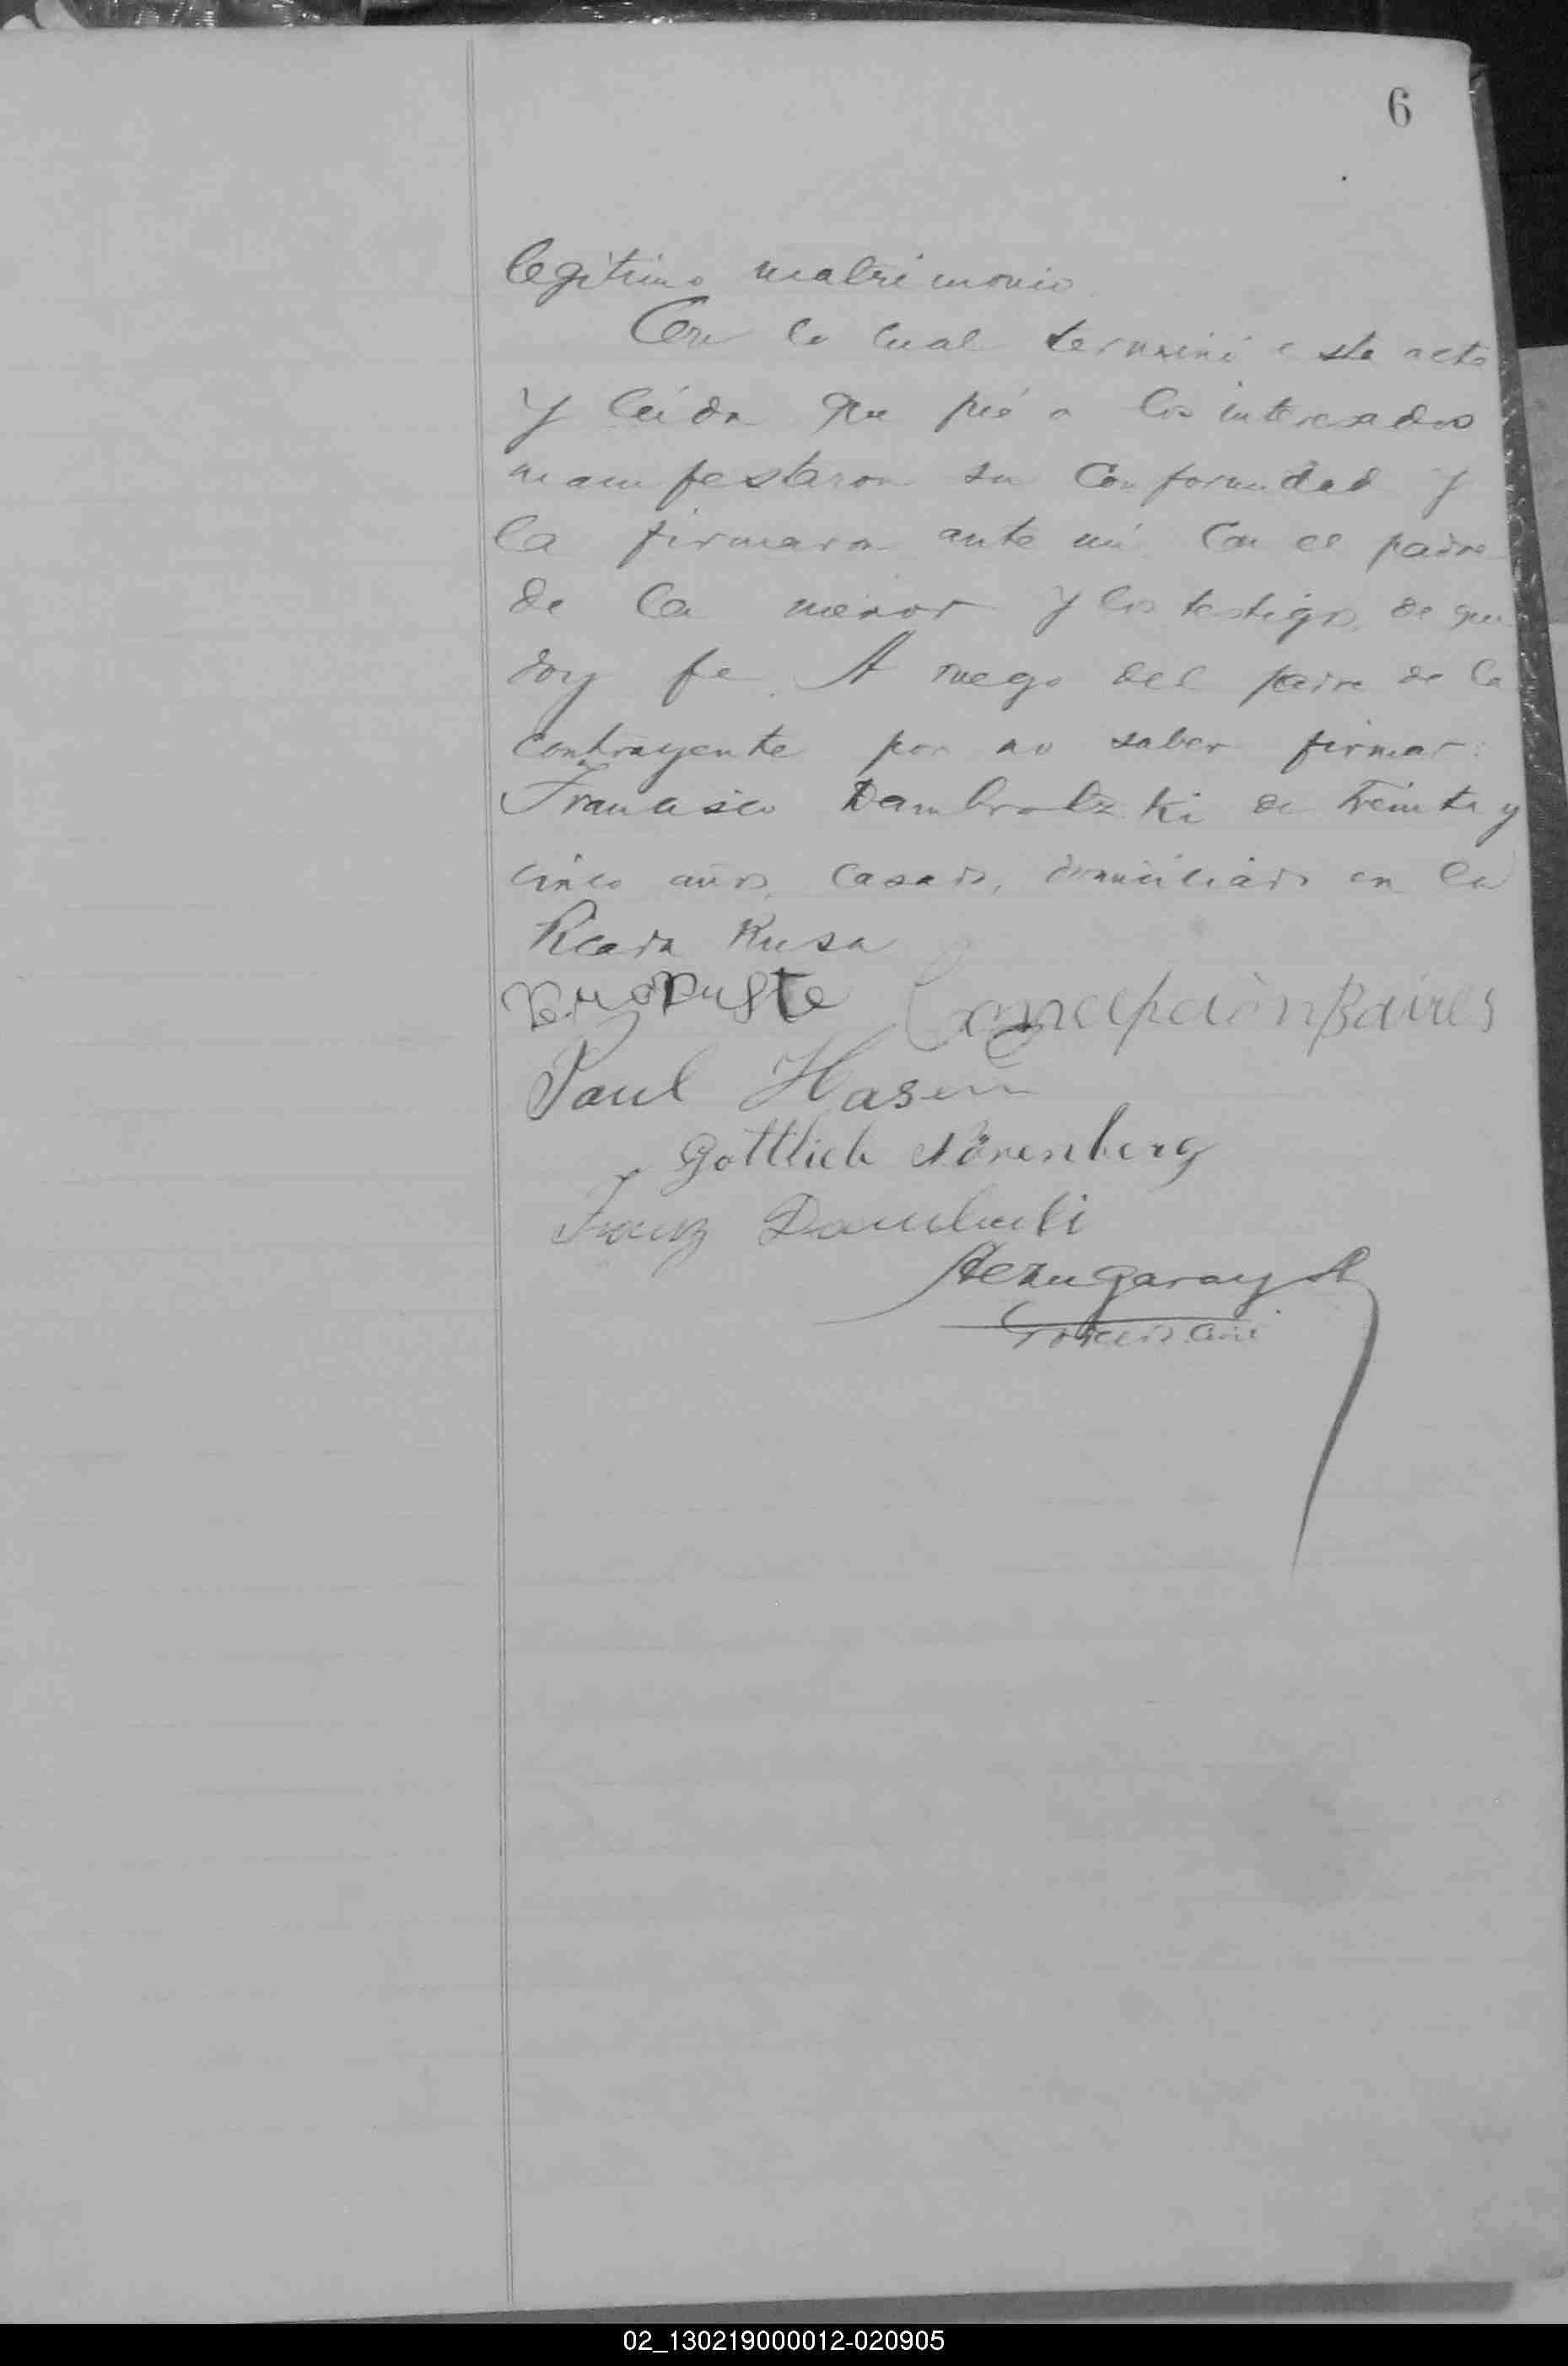 6
legitimo matrimonio
Con lo cual terminó este acto
y leida que fué a los interesados
manifestaron su conformidad y
la firmaron ante mí con el padre
de la menor y los testigos de que
doy fe. A ruego del padre de la
contrayente por no saber firmar:
Francisco Dambrotzki de treinta y
cinco años, casado, domiciliado en la
Rusa
Concepción Baires
Paul Hasen
Gottlieb Nörenberg
Franz
garay
02_130219000012-020905